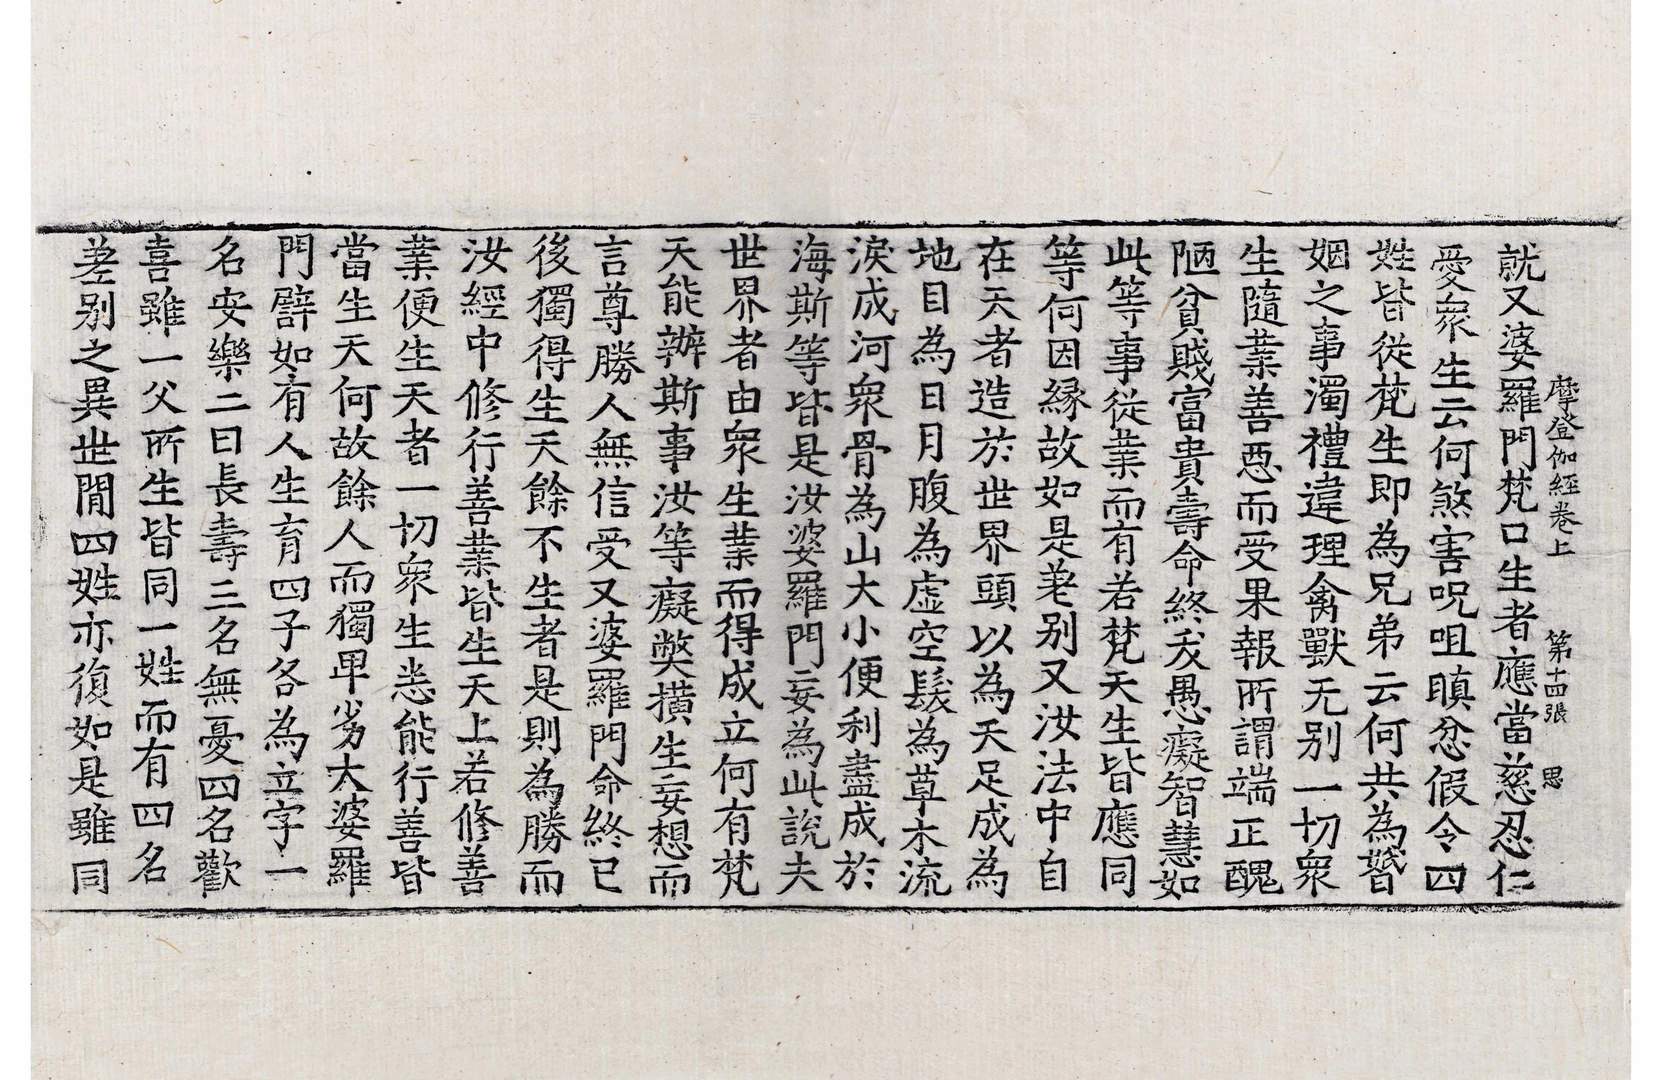 摩登伽經卷上　第十四張　思
就又婆羅門梵口生者應當慈忍仁
愛衆生云何煞害呪咀瞋忿假令四
姓皆從梵生即為兄弟云何共為婚
姻之事濁禮違理禽獸无別一切衆
生隨業善惡而受果報所謂端正醜
陋貧賤富貴壽命終夭愚癡智慧如
此等事從業而有若梵天生皆應同
等何因縁故如是差别又汝法中自
在天者造於世界頭以為天足成為
地目為日月腹為虛空髮為草木流
淚成河衆骨為山大小便利盡成於
海斯等皆是汝婆羅門妄為此說夫
世界者由衆生業而得成立何有梵
天能辦斯事汝等癡獘撗生妄想而
言尊勝人無信受又婆羅門命終已
後獨得生天餘不生者是則為勝而
汝經中修行善業皆生天上若修善
業便生天者一切衆生悉能行善皆
當生天何故餘人而獨卑劣大婆羅
門譬如有人生育四子各為立字一
名安樂二曰長壽三名無憂四名歡
喜雖一父所生皆同一姓而有四名
差別之異世間四姓亦復如是雖同